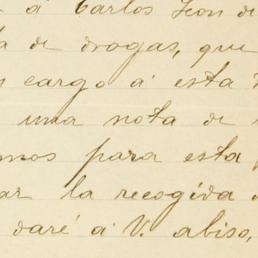 á Carlos Leon de
de drogas, que
cargo á esta
una nota de
mos para esta
ar la recogida
daré á V. abiso,